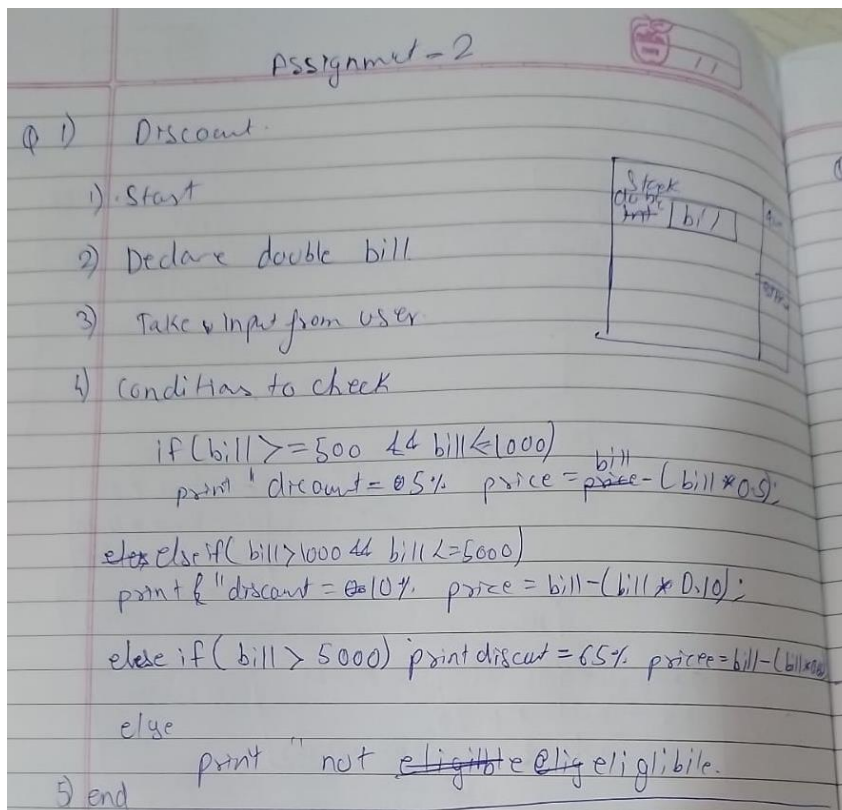 Assignmet - 2
Q 1) Discount.
1) Start
Stack
double
int bill
2) Declare double bill
3) Take input from user
4) conditions to check
if (bill >= 500 && bill <= 1000)
bill
print " dicount = 05% price = price - (bill * 0.5);
else if ( bill > 1000 && bill <= 5000)
print " discount = 10% price = bill - (bill * 0.10);
elese if ( bill > 5000) print discut = 65% pricee = bill - (bill*
else
print " not eligible elig eliglibile.
5) end